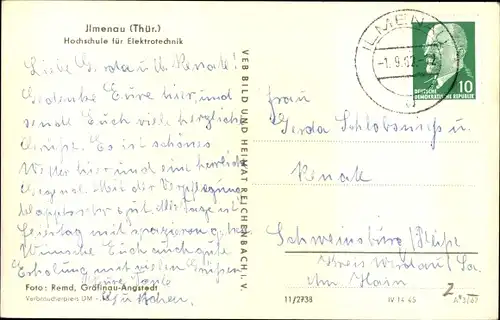 Jlmenau (Thür.)
Hochschule für Elektrotechnik
Liebe Gerda u. Renate!
Gedenke Eure hier und
sende Euch viele herzliche
Grüße. Es ist schönes
Wetter hier und eine herrliche
Gegend. Mit der Verpflegung
klappt es sehr gut. Mittags ist
mit spazieren gehen
Wünsche Euch auch gute
Erholung mit vielen Grüßen
Eure Tante
VEB BILD UND HEIMAT REICHENBACH I. V.
ILMENAU
-1.9.62
DEUTSCHE
DEMOKRATISCHE REPUBLIK
10
Frau
Gerda u.
Renate
Schweinsburg/Pleiße
Kreis Werdau/Sa.
Am Hain
Foto: Remd, Gräfinau-Angstedt
Verbraucherpreis DM
11/2738
IV 14 45
A 3/62